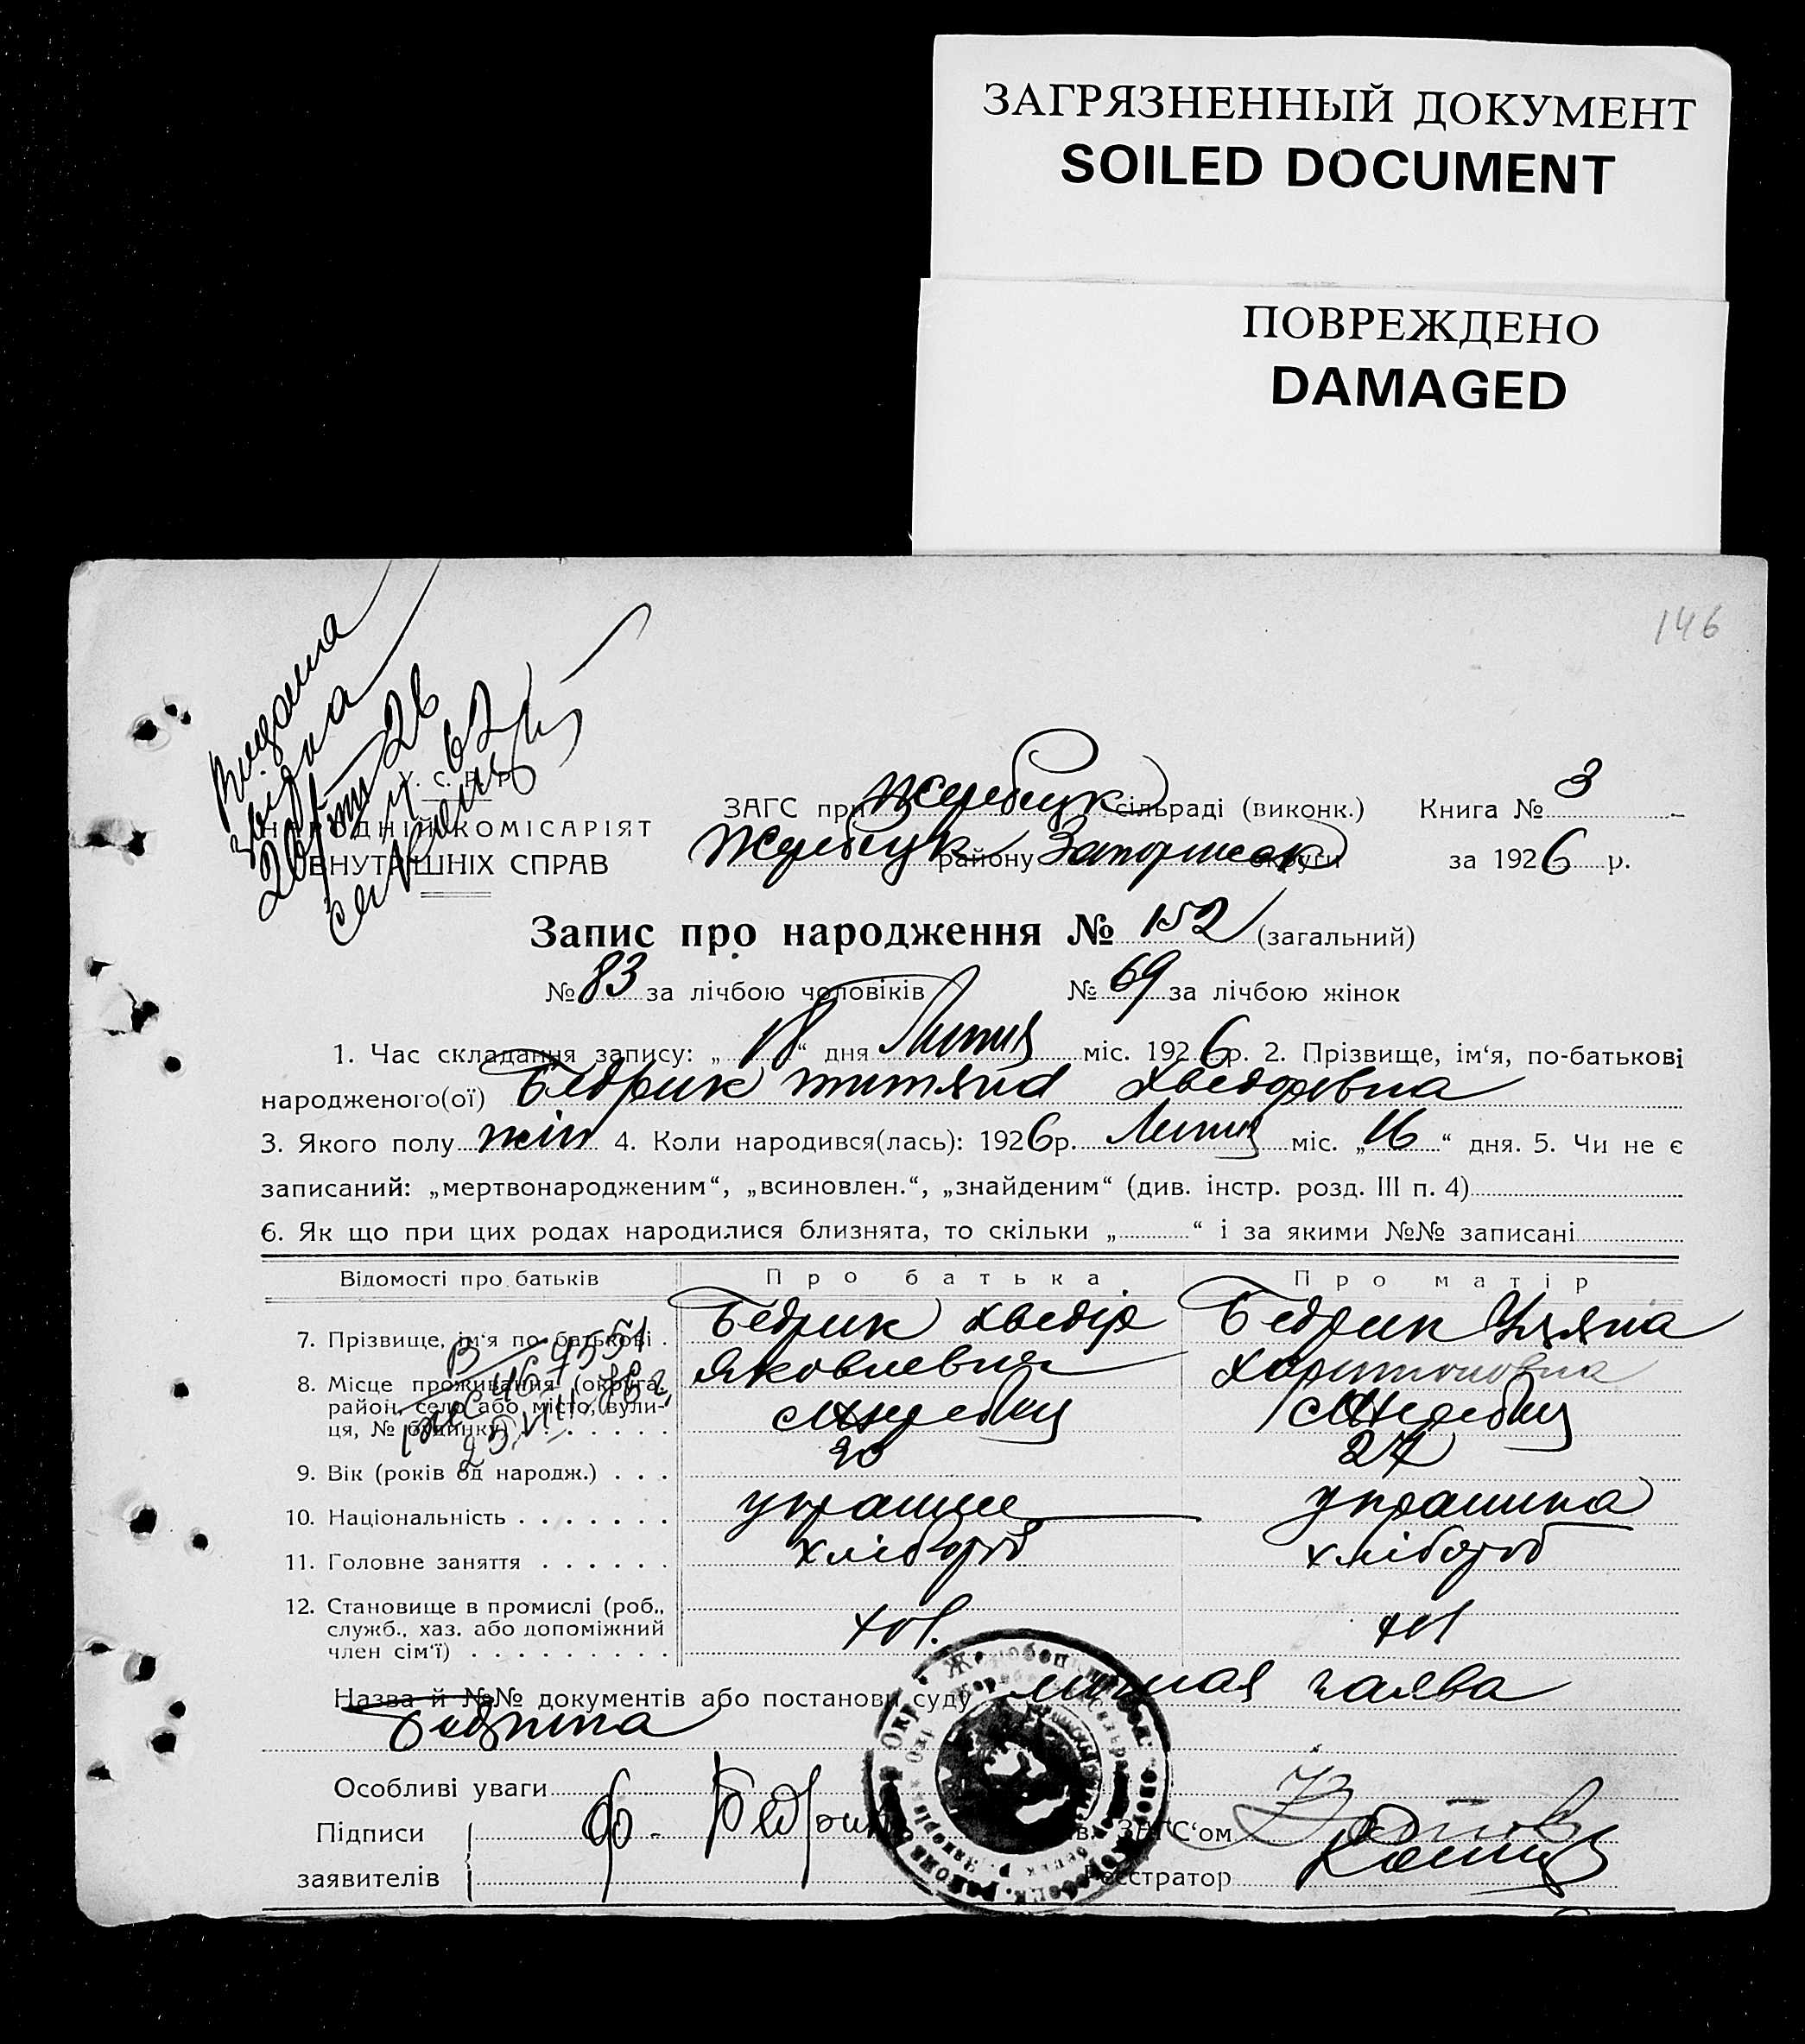 ЗАГРЯЗНЕННЫЙ ДОКУМЕНТ
SOILED DOCUMENT
ПОВРЕЖДЕНО
DAMAGED
146
У. С. Р. Р.
НАРОДНІЙ КОМІСАРІЯТ
ВНУТРІШНІХ СПРАВ
ЗАГС при Жеребецк сільраді (виконк.) Книга № 3
Жеребецк району Запоризьк округи за 1926 р.
Запис про народження № 152 (загальний)
№ 83 за лічбою чоловіків № 69 за лічбою жінок
1. Час складання запису: „18“ дня Липня міс. 1926 р. 2. Прізвище, ім‘я, по-батькові
народженого(ої) Бедрик Хведорівна
3. Якого полу жін 4. Коли народився(лась): 1926 р. Липня міс. „16“ дня. 5. Чи не є
записаний: „мертвонародженим“, „всиновлен.“, „знайденим“ (див. інстр. розд. III п. 4)
6. Як що при цих родах народилися близнята, то скільки „ “ і за якими №№ записані
Відомості про батьків Про батька Про матір
7. Прізвище, ім‘я по-батькові . Бедрик Хведір Бедрик Уляна
Яковлевич Харитоновна
8. Місце проживання (округа, район, село або місто, вули-
ця, № будинку) . . . . . . с Жеребець с Жеребець
9. Вік (років од народж.) . . . 30 27
10. Національність . . . . . . . українец украинка
11. Головне заняття . . . . . . хлібороб хлібороб
12. Становище в промислі (роб.,
служб., хаз. або допоміжний
член сім‘ї) . . . . . . . . .
Назва й №№ документів або постанови суду заява
Особливі уваги
Підписи Ф. Бедрик Зав. ЗАГС‘ом
заявителів Реєстратор